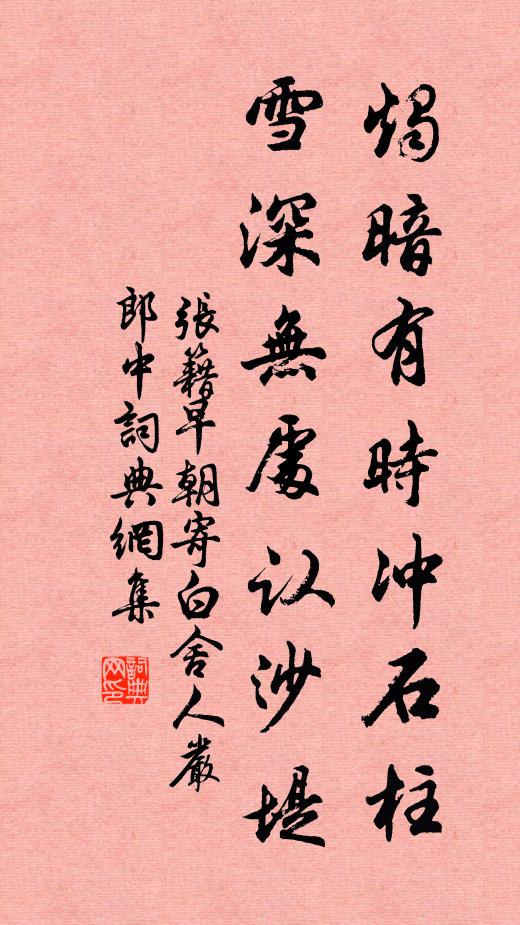 燭暗有時沖石柱
雪深無處认沙堤
張籍早朝寄白舍人嚴
郎中詞典網集
詞典
网印